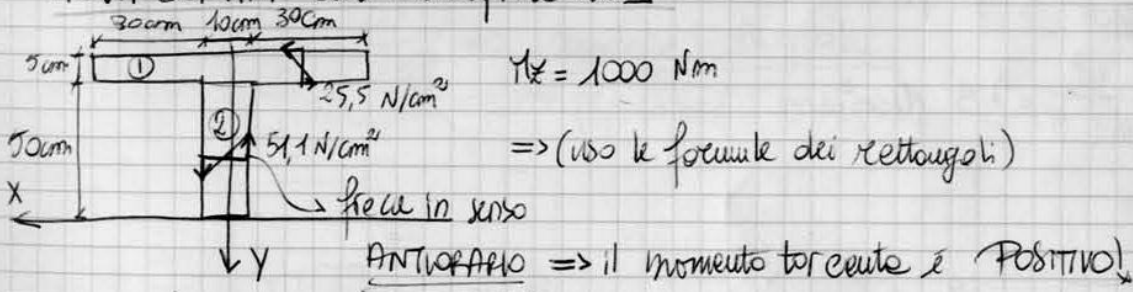 30cm 10cm 30cm
5cm ①
Mz = 1000 Nm
25,5 N/cm²
②
50cm
51,1 N/cm²
=> (uso le formule dei rettangoli)
X
frecce in senso
Y
ANTIORARIO => il momento torcente è POSITIVO!